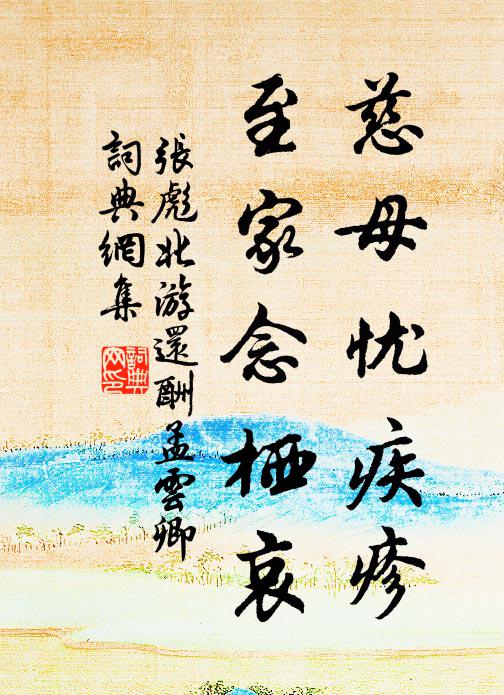 慈母忧疾疹
至家念栖哀
張彪北游還酬孟雲卿
詞典網集
詞典网印